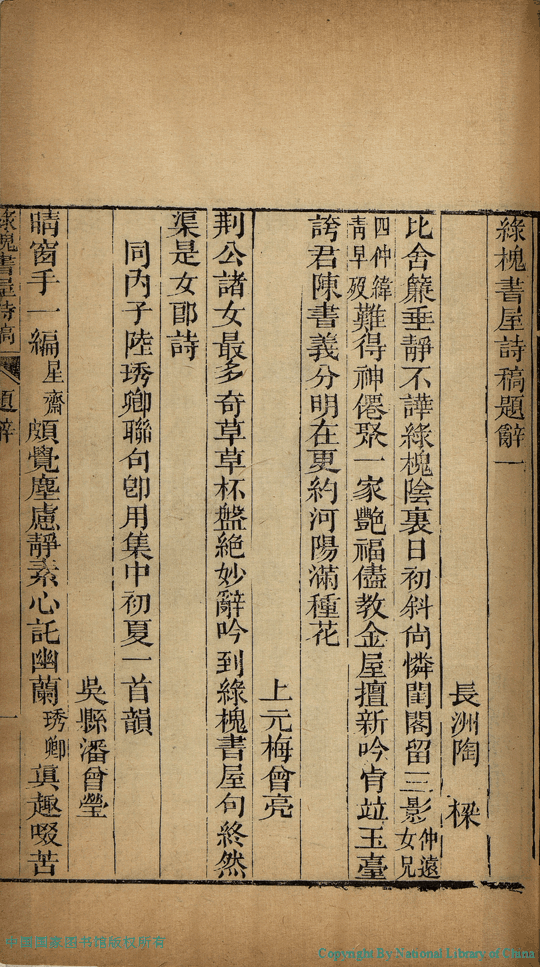 綠槐書屋詩稿題辭一
長洲陶　樑
比舍簾垂靜不譁綠槐陰裏日初斜尙憐閨閣留三影仲遠女兄
四仲緯靑早歿難得神僊聚一家艷福儘敎金屋擅新吟肯竝玉臺
誇君陳書義分明在更約河陽滿種花
上元梅曾亮
荆公諸女最多奇草草杯盤絶妙辭吟到綠槐書屋句終然
渠是女郎詩
同內子陸琇卿聯句卽用集中初夏一首韻
吳縣潘曾瑩
晴窗手一編星齋頗覺塵慮靜素心託幽蘭琇卿眞趣啜苦
綠槐書屋詩稿
題辭
一
中国国家图书馆版权所有
Copyright By National Library of China